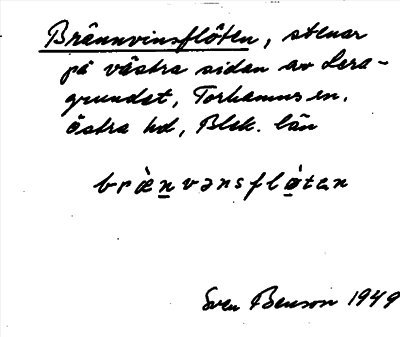 Brännvinsflöten, stenar
på västra sidan av Lera-
grundet, Torhamns sn.
Östra hd, Blek. län
bræ̀nvənsflø̀tən
Sven Benson 1949